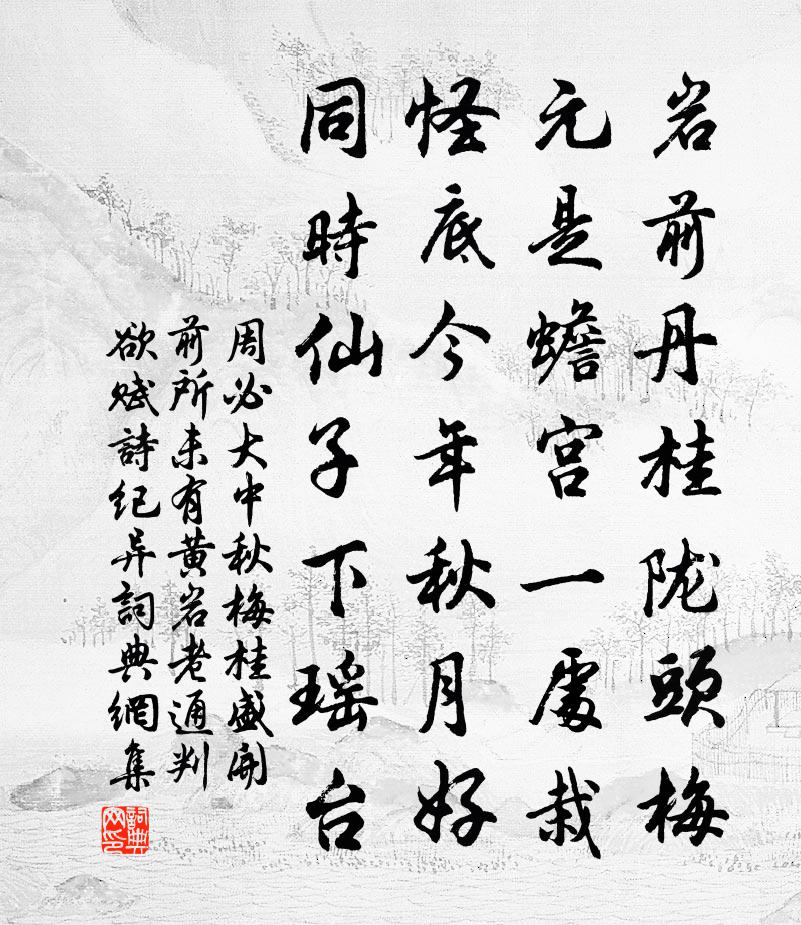 岩前丹桂陇頭梅
元是蟾宫一處栽
怪底今年秋月好
同時仙子下瑶台
周必大中秋梅桂盛開
前所未有黄岩老通判
欲赋詩纪异詞典網集
詞典网印